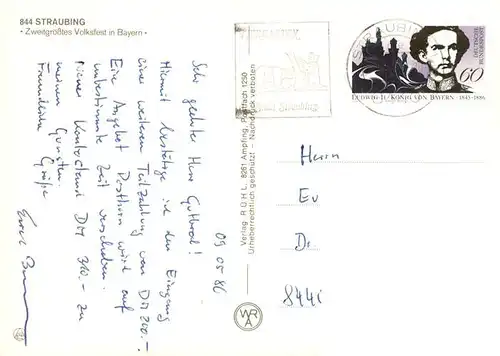 844 STRAUBING
· Zweitgrößtes Volksfest in Bayern ·
09 05 86
Sehr geehrter Herr Gutbrod!
Hiermit bestätige ich den Eingang
einer weiteren Teilzahlung von DM 200.-
Eine Angebot Posthorn wird auf
unbestimmte Zeit verschoben.
Dieser Kontostand DM 340.- zu
meinen Gunsten.
Freundliche Grüße
Verlag R Ü H L, 8261 Ampfing, Postfach 1250
Urheberrechtlich geschützt - Nachdruck verboten
WRA
DEUTSCHE
BUNDESPOST
60
LUDWIG II. KÖNIG VON BAYERN · 1845-1886
Herrn
Ev
Dr.
844